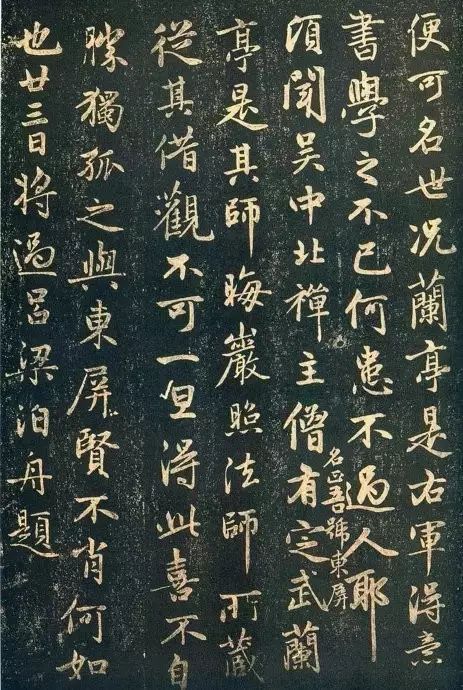 便可名世况蘭亭是右軍得意
書學之不已何患不過人耶
頃聞吴中北禪主僧有定武蘭
名正吾號東屏
亭是其師晦巖照法師所藏
從其借觀不可一旦得此喜不自
勝獨孤之與東屏賢不肖何如
也廿三日將過吕梁泊舟題